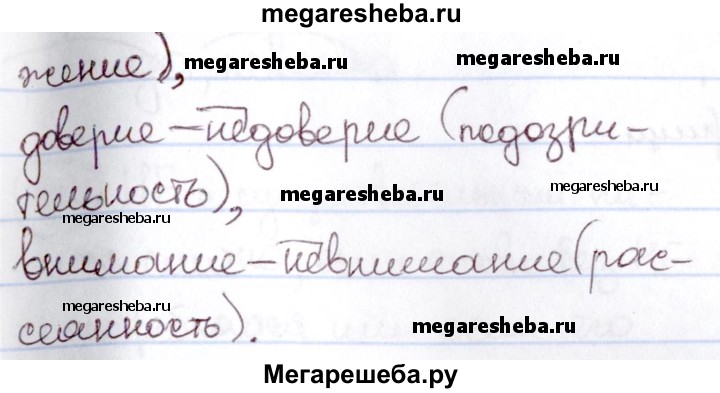 megaresheba.ru
жение),
megaresheba.ru
megaresheba.ru
доверие – недоверие (подозри-
тельность),
megaresheba.ru
megaresheba.ru
megaresheba.ru
внимание – невнимание (рас-
megaresheba.ru
сеянность).
megaresheba.ru
Мегарешеба.ру